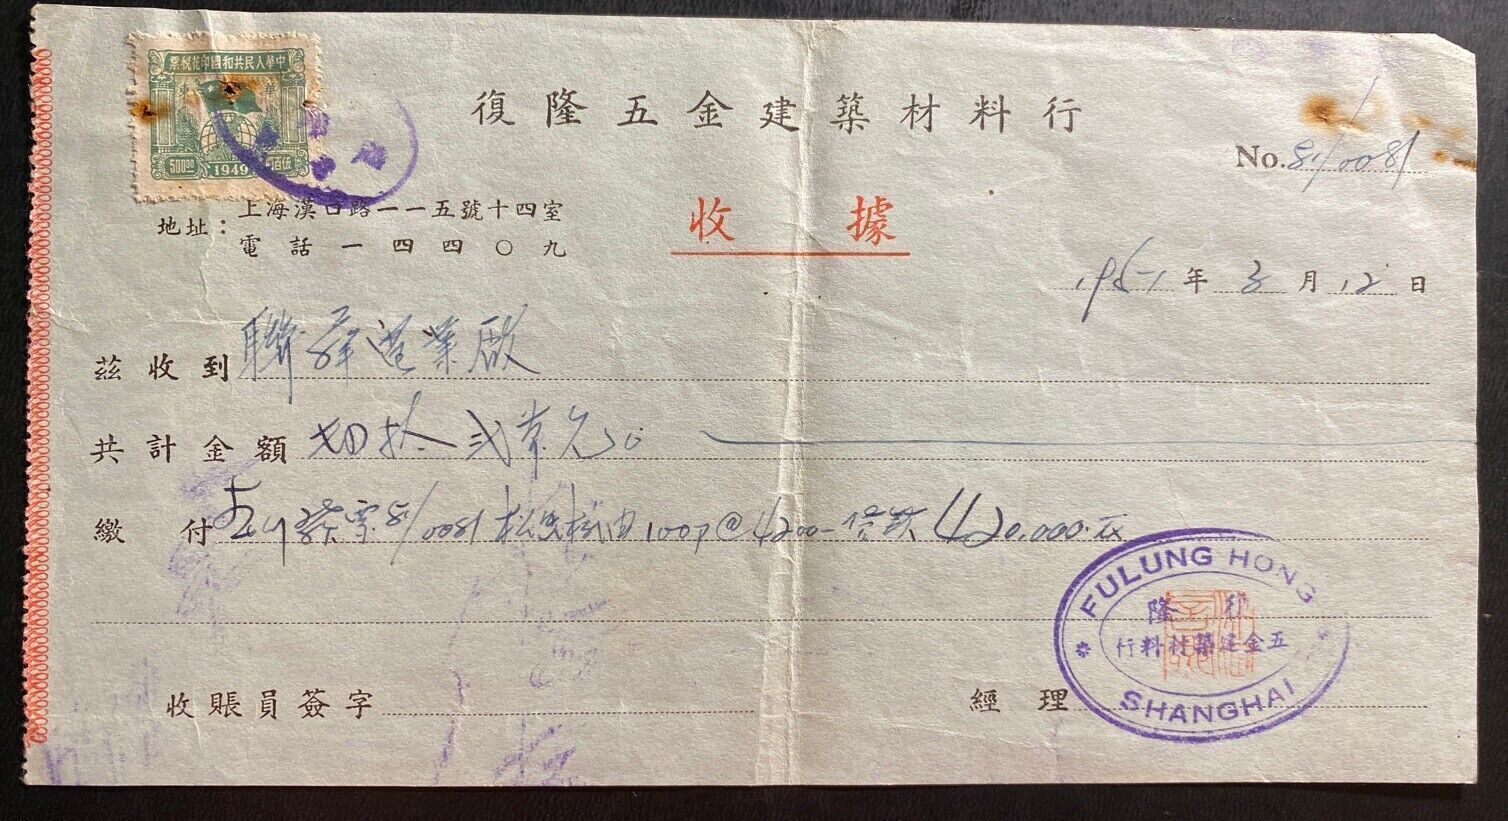 中華人民共和國印花稅票
500⁰⁰
伍百
1949
復隆五金建築材料行
No. 81/0081
地址：上海漢口路一一五號十四室
電話一四四〇九
收據
1951年3月12日
茲收到 聯 業廠
共計金額 肆拾弍萬元正
繳付 發票81/0081 100 @ 4200- 貨款 420,000.元
FULUNG HONG
復隆
五金建築材料行
SHANGHAI
收賬員簽字
經理